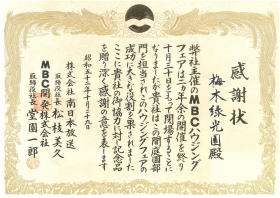 感謝状
梅木緑光園殿
弊社主催のMBCハウジング
フェアは一カ年余の開催を終り
十月三十日をもって閉場することに
なりましたが貴社はこの間庭園部
門を担当されこのハウジングフェアの
成功に大きな役割を果されました
ここに貴社の御協力に対し記念品
を贈り深く感謝の意を表します
昭和五十二年十月二十九日
株式会社南日本放送
取締役社長 松枝美久
MBC開発株式会社
取締役社長 堂園一郎